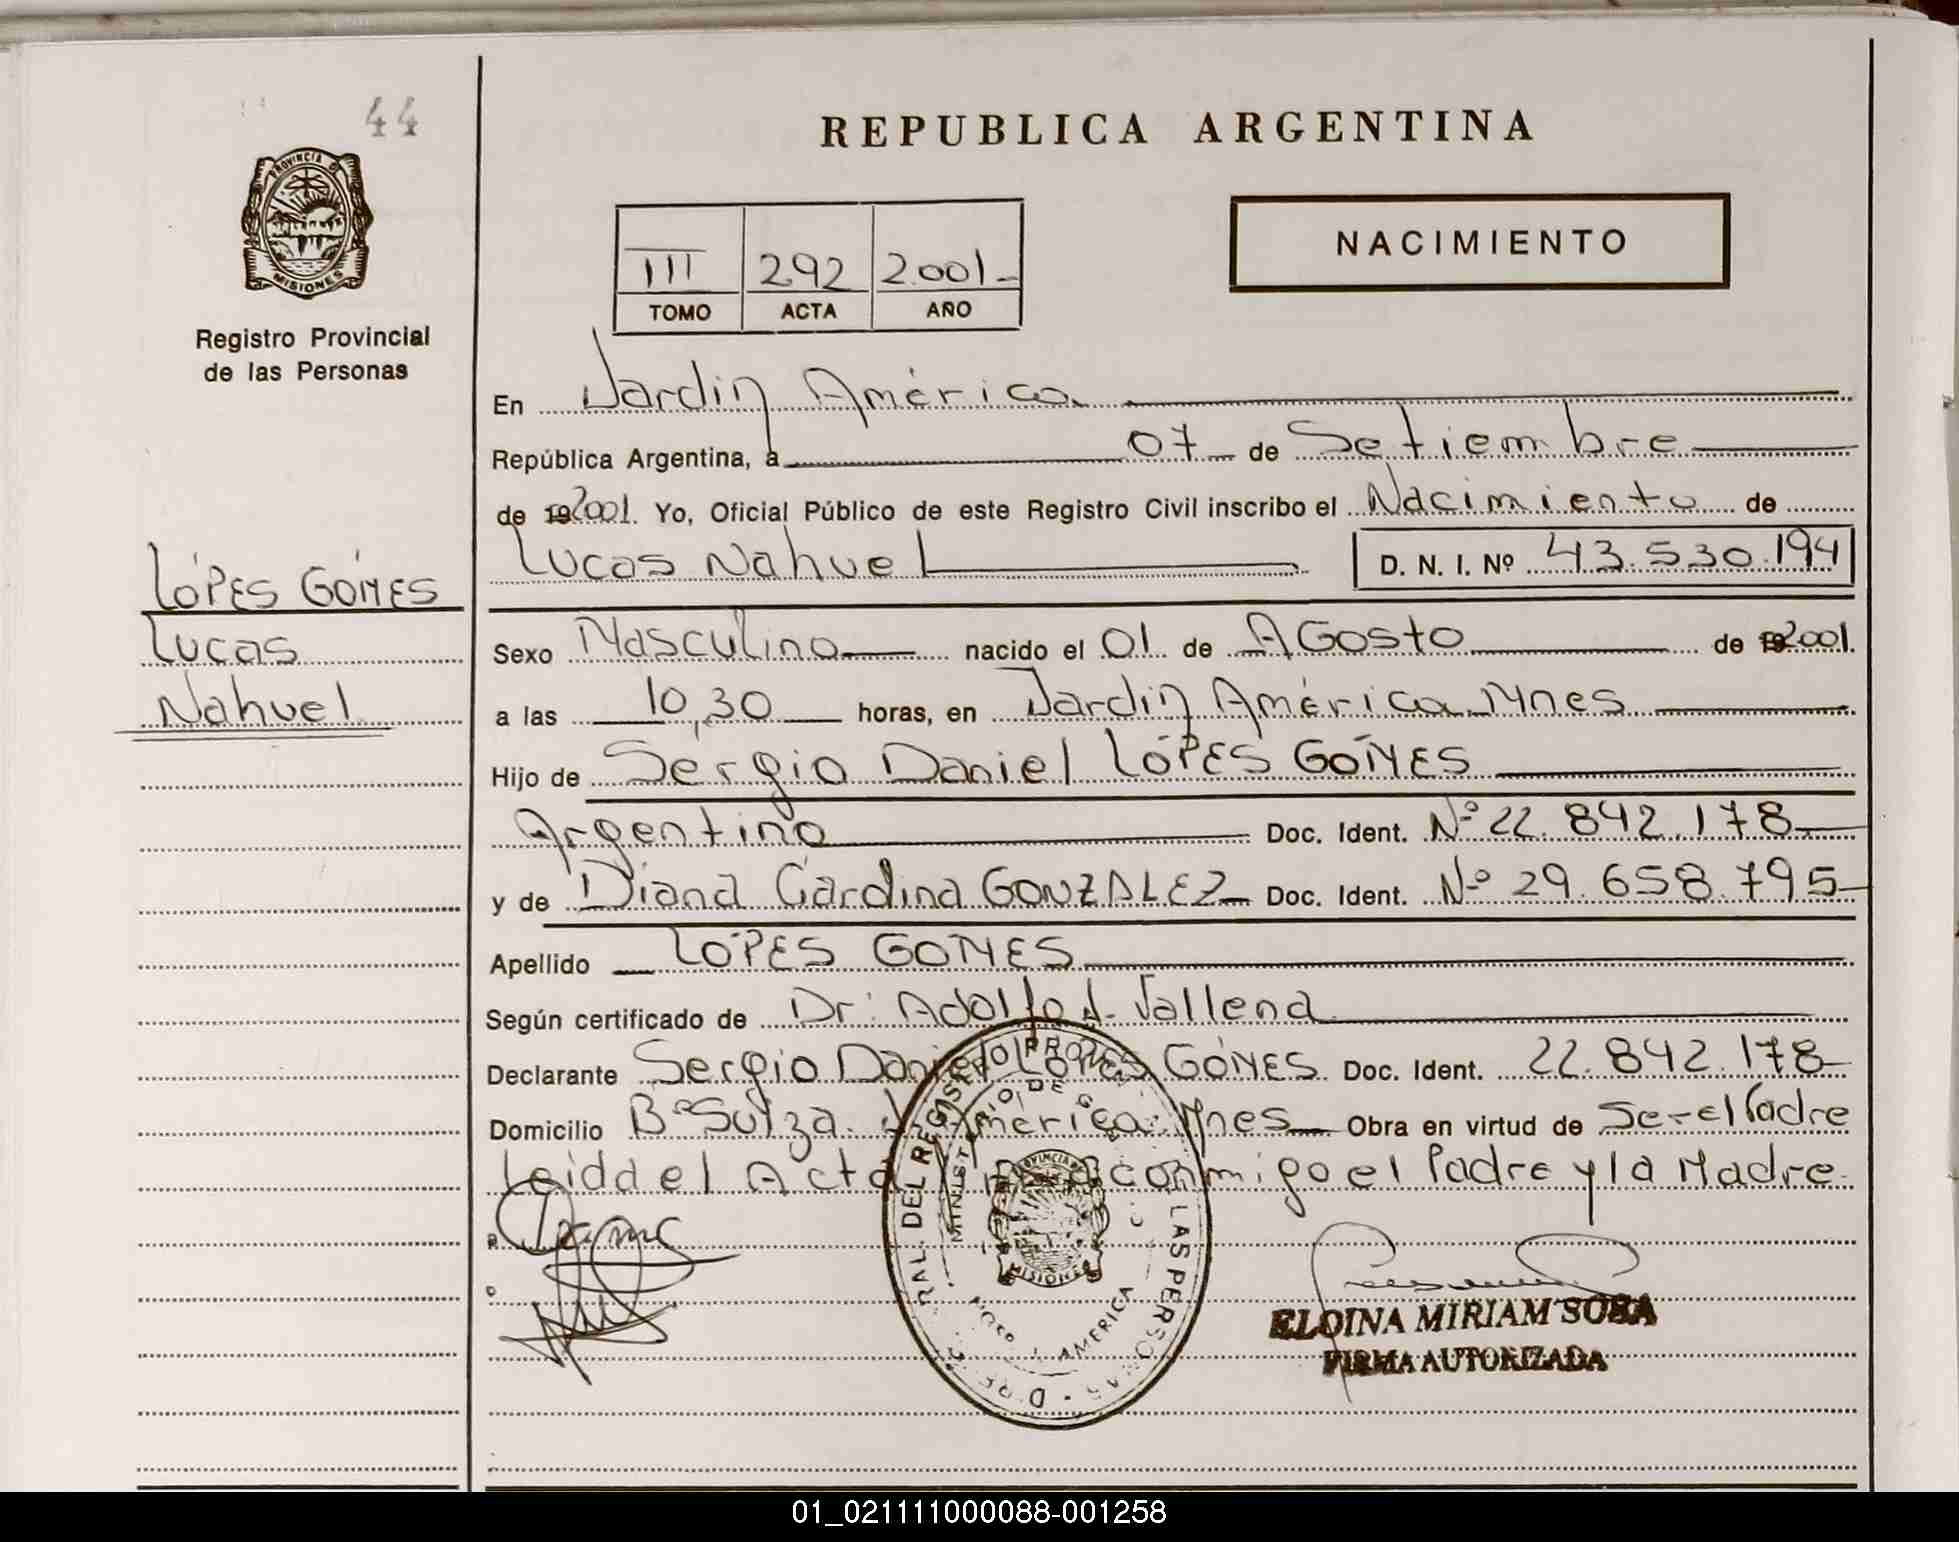 44
REPUBLICA ARGENTINA
PROVINCIA DE
MISIONES
Registro Provincial
de las Personas
III 292 2.001
TOMO ACTA AÑO
NACIMIENTO
En Jardin América
República Argentina, a 07 de Setiembre
de 192001. Yo, Oficial Público de este Registro Civil inscribo el Nacimiento de
Lucas Nahuel D. N. I. Nº 43.530.194
LÓPES GOMES
Lucas
Nahuel
Sexo Masculino nacido el 01 de AGosto de 192001.
a las 10,30 horas, en Jardin América Mnes
Hijo de Sergio Daniel LÓPES GOMES
Argentino Doc. Ident. Nº 22.842.178
y de Diana Carolina GONZALEZ Doc. Ident. Nº 29.658.795
Apellido LOPES GOMES
Según certificado de Dr: Adolfo J. Vallena
Declarante Sergio Daniel LÓPES GÓMES Doc. Ident. 22.842.178
Domicilio Bº Suiza. J. América Mnes Obra en virtud de Ser el Padre
Leida el Acta conmigo el Padre y la Madre.
DEL REGISTRO PROV. LAS PERSONAS
MINISTERIO DE G
PROVINCIA DE
MISIONES
AMERICA
ELOINA MIRIAM SOSA
FIRMA AUTORIZADA
01_021111000088-001258